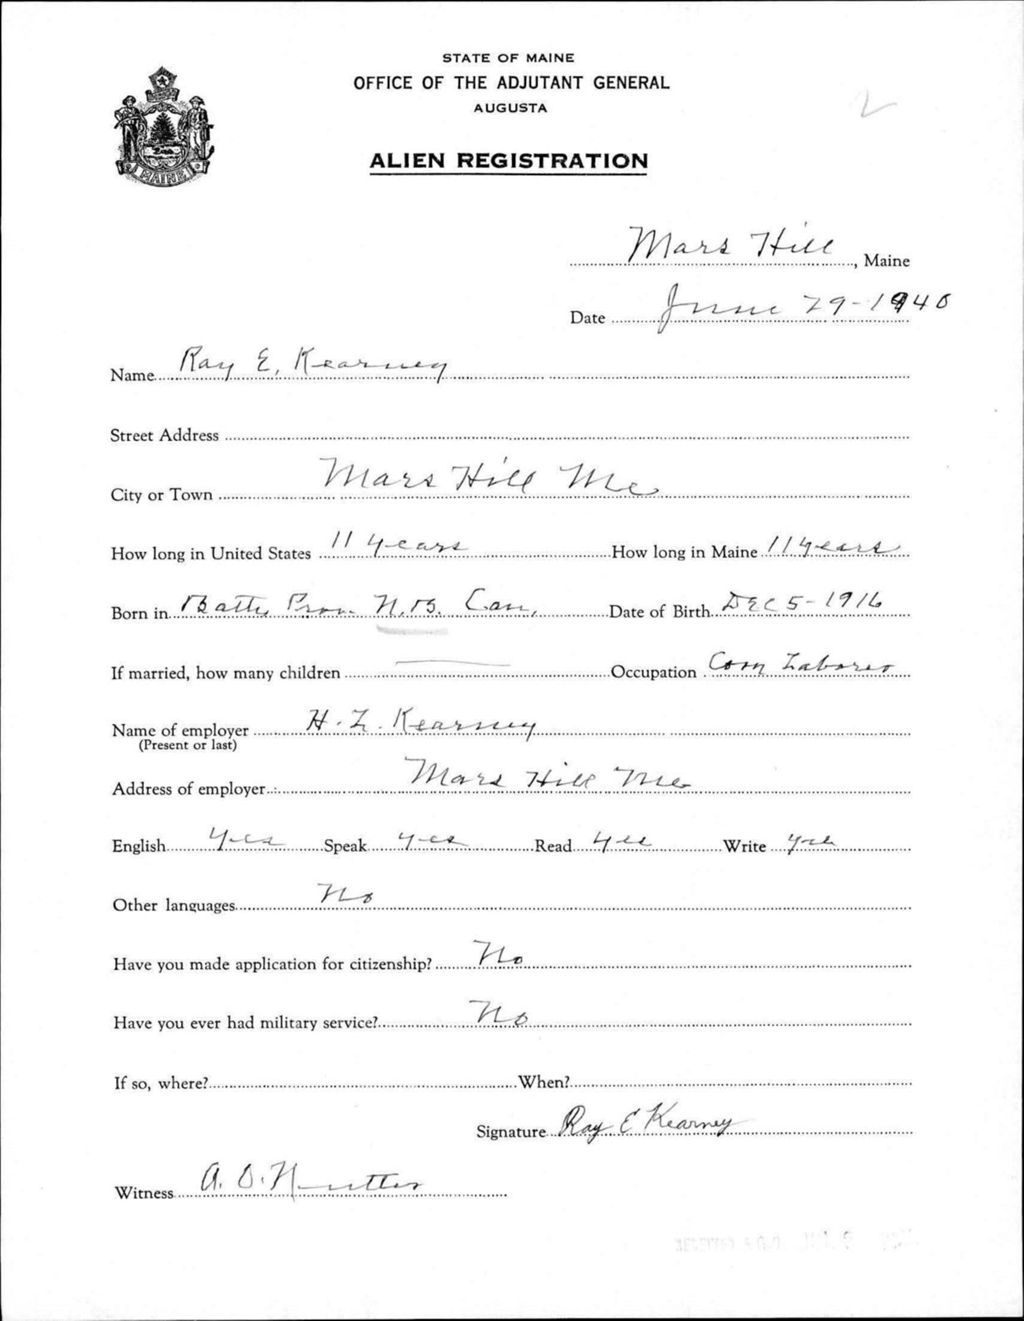 STATE OF MAINE
OFFICE OF THE ADJUTANT GENERAL
AUGUSTA
ALIEN REGISTRATION
MAINE
Mars Hill, Maine
Date June 29-1940
Name Ray E. Kearney
Street Address
City or Town Mars Hill Me
How long in United States 11 years How long in Maine 11 years
Born in N.B. Can. Date of Birth DEC 5-1916
If married, how many children — Occupation Com Laborer
Name of employer H. L. Kearney
(Present or last)
Address of employer Mars Hill Me
English yes Speak yes Read yes Write yes
Other languages No
Have you made application for citizenship? No
Have you ever had military service? No
If so, where? When?
Signature Ray E Kearney
Witness A. O.